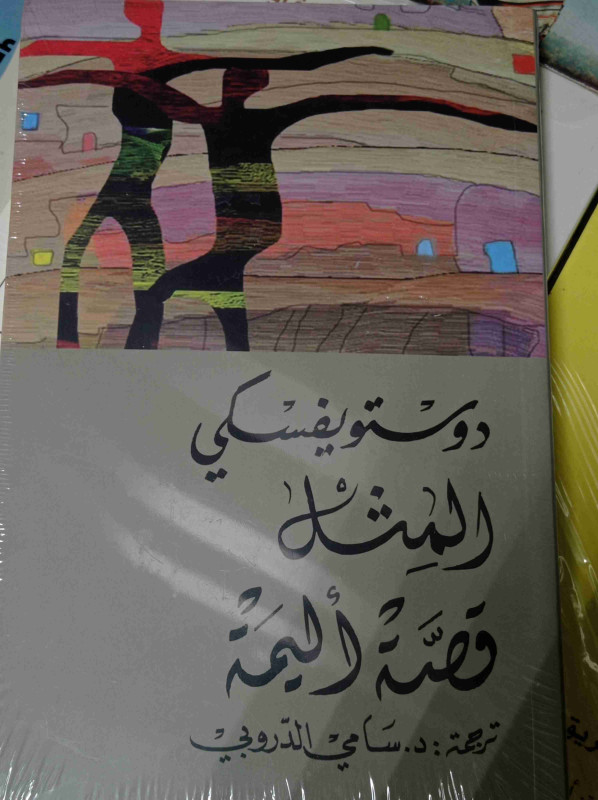 دوستويفسكي
المِثْل
قصَّة أليمَة
ترجمة : د. سَامي الدّروبي